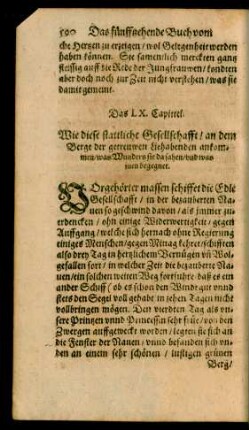 590 Das fünffzehende Buch vom
che Hertzen zu erzeigen / wol Gelegenheit werden
haben können. Sie samentlich merckten gantz
fleissig auff die Rede der Jungfrauwen / kondten
aber doch noch zur Zeit nicht verstehen / was sie
damit gemeint.
Das LX. Capittel.
Wie diese stattliche Gesellschafft / an dem
Berge der getreuwen Liebhabenden ankom-
men / was Wunders sie da sahen / und was
jnen begegnet.
VOrgehörter massen schiffet die Edle
Gesellschafft / in der bezauberten Na-
uen so geschwind davon / als immer zu-
erdencken / ohn einige Widerwertigkeit / gegen
Auffgang / welche sich hernach ohne Regierung
einiges Menschen / gegen Mittag kehret / schifften
also drey Tag in hertzlichem Vernügen uñ Wol-
gefallen fort / in welcher Zeit die bezauberte Na-
uen / ein solchen weiten Weg fortfuhr / daß es ein
ander Schiff ( ob es schon den Wind gut unnd
stets den Segel voll gehabt in zehen Tagen nicht
vollbringen mögen. Den vierdten Tag als un-
sere Printzen unnd Princessin sehr früe / von den
Zwergen auffgeweckt worden / legten sie sich an
die Fenster der Nauen / unnd befanden sich un-
den an einem sehr schönen / lustigen grünen
Berg /